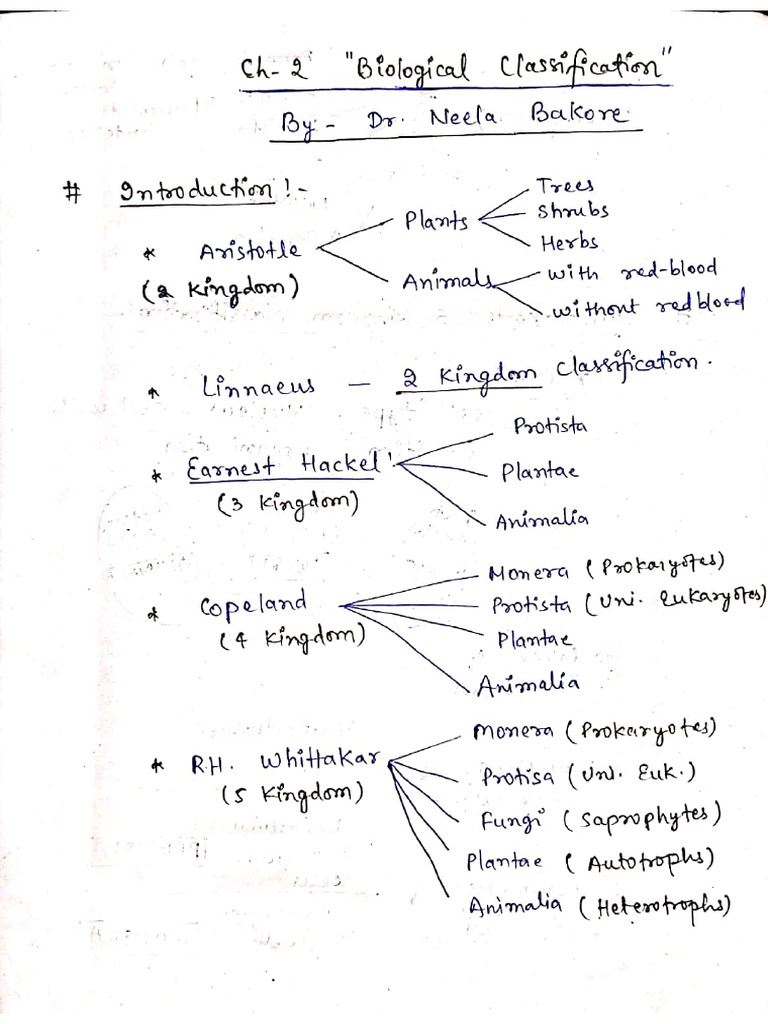 Ch-2 "Biological Classification"
By:- Dr. Neela Bakore
# Introduction!-
* Aristotle
(2 Kingdom)
Plants
Trees
Shrubs
Herbs
Animals
with red-blood
without redblood
* Linnaeus - 2 Kingdom Classification.
* Earnest Hackel!
(3 Kingdom)
Protista
Plantae
Animalia
* Copeland
(4 Kingdom)
Monera (Prokaryotes)
Protista (Uni. Eukaryotes)
Plantae
Animalia
* R.H. Whittakar
(5 Kingdom)
Monera (Prokaryotes)
Protisa (Uni. Euk.)
Fungi (Saprophytes)
Plantae (Autotrophs)
Animalia (Heterotrophs)